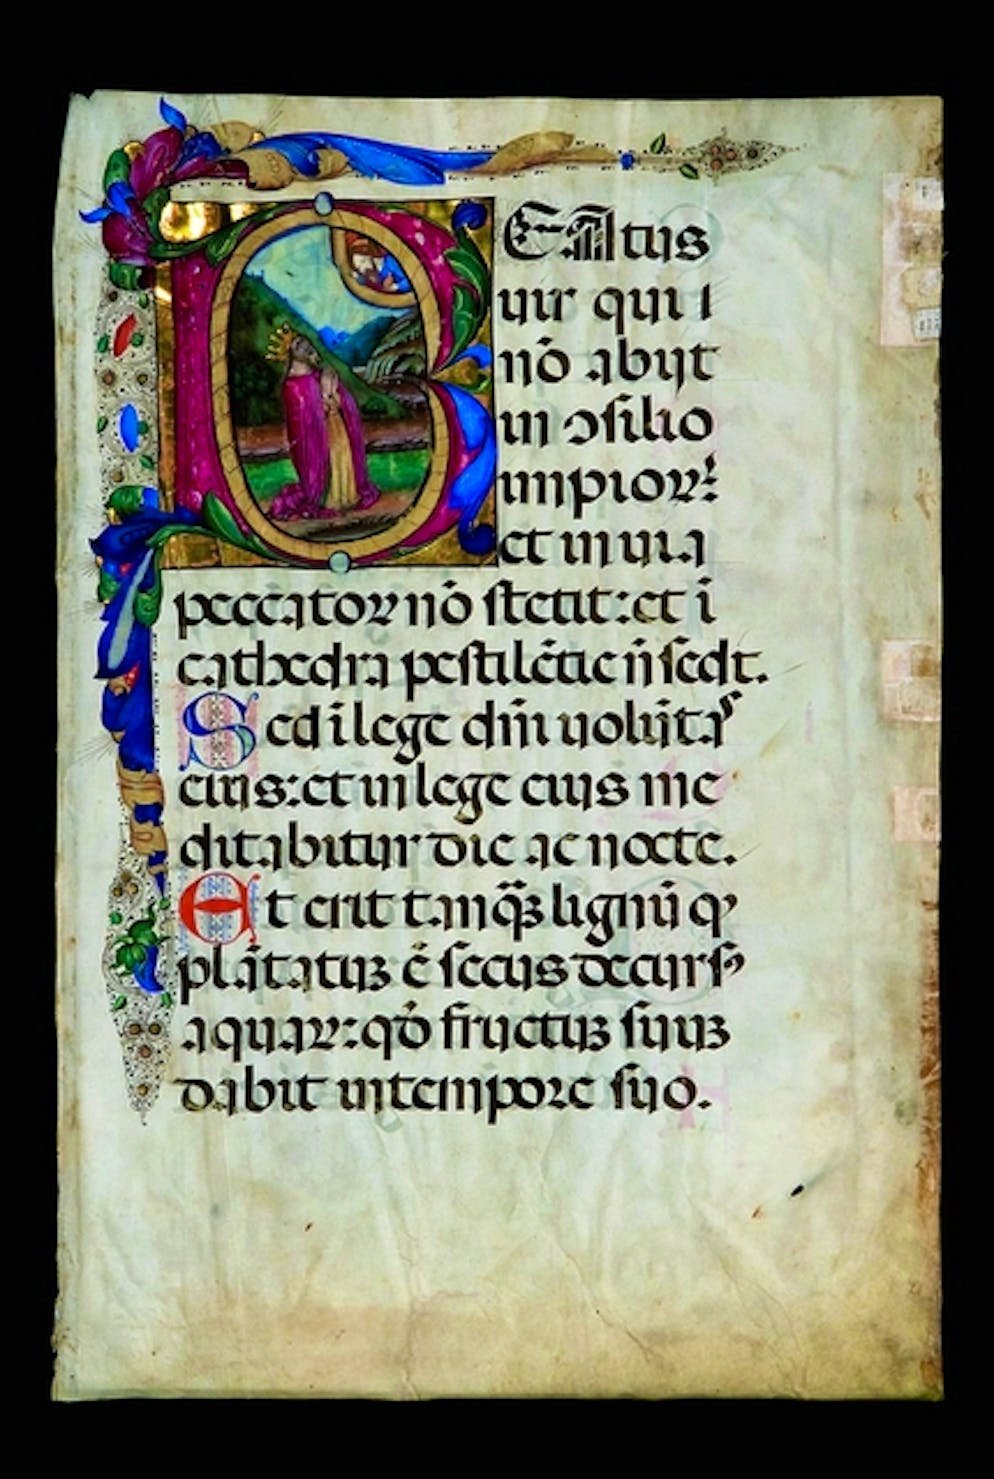 BEAtus
uir qui i
nō abijt
in ↄsilio
impioꝝ:
et in uia
peccatoꝝ nō stetit: et i
cathedra pestilētie n̄ sedt.
Sed i lege dn̄i uolūtas
eius: et in lege eius me
ditabitur die ac nocte.
Et erit tamq̄ꝫ lignū qꝫ
plātatuꝫ ē secus decursꝰ
aquaꝝ: qđ fructuꝫ suuꝫ
dabit in tempore suo.